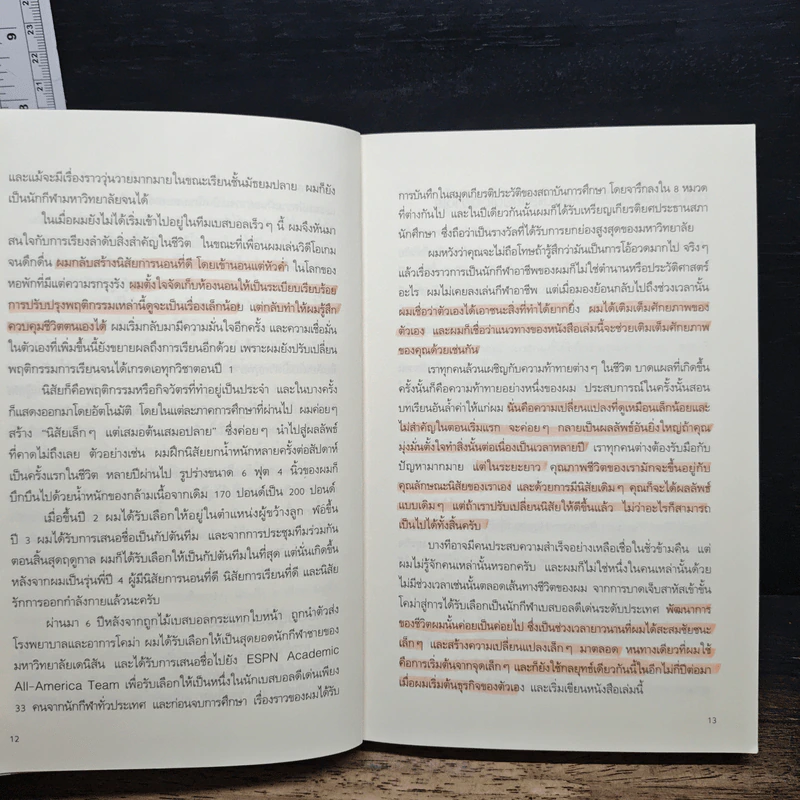 และแม้จะมีเรื่องราววุ่นวายมากมายในขณะเรียนชั้นมัธยมปลาย ผมก็ยัง
เป็นนักกีฬามหาวิทยาลัยจนได้
ในเมื่อผมยังไม่ได้เริ่มเข้าไปอยู่ในทีมเบสบอลเร็วๆ นี้ ผมจึงหันมา
สนใจกับการเรียงลำดับสิ่งสำคัญในชีวิต ในขณะที่เพื่อนผมเล่นวิดีโอเกม
จนดึกดื่น ผมกลับสร้างนิสัยการนอนที่ดี โดยเข้านอนแต่หัวค่ำ ในโลกของ
หอพักที่มีแต่ความรกรุงรัง ผมตั้งใจจัดเก็บห้องนอนให้เป็นระเบียบเรียบร้อย
การปรับปรุงพฤติกรรมเหล่านี้ดูจะเป็นเรื่องเล็กน้อย แต่กลับทำให้ผมรู้สึก
ควบคุมชีวิตตนเองได้ ผมเริ่มกลับมามีความมั่นใจอีกครั้ง และความเชื่อมั่น
ในตัวเองที่เพิ่มขึ้นนี้ยังขยายผลถึงการเรียนอีกด้วย เพราะผมยังปรับเปลี่ยน
พฤติกรรมการเรียนจนได้เกรดเอทุกวิชาตอนปี 1
นิสัยก็คือพฤติกรรมหรือกิจวัตรที่ทำอยู่เป็นประจำ และในบางครั้ง
ก็แสดงออกมาโดยอัตโนมัติ โดยในแต่ละภาคการศึกษาที่ผ่านไป ผมค่อยๆ
สร้าง “นิสัยเล็กๆ แต่เสมอต้นเสมอปลาย” ซึ่งค่อยๆ นำไปสู่ผลลัพธ์
ที่คาดไม่ถึงเลย ตัวอย่างเช่น ผมฝึกนิสัยยกน้ำหนักหลายครั้งต่อสัปดาห์
เป็นครั้งแรกในชีวิต หลายปีผ่านไป รูปร่างขนาด 6 ฟุต 4 นิ้วของผมก็
บึกบึนไปด้วยน้ำหนักของกล้ามเนื้อจากเดิม 170 ปอนด์เป็น 200 ปอนด์
เมื่อขึ้นปี 2 ผมได้รับเลือกให้อยู่ในตำแหน่งผู้ขว้างลูก พอขึ้น
ปี 3 ผมได้รับการเสนอชื่อเป็นกัปตันทีม และจากการประชุมทีมร่วมกัน
ตอนสิ้นสุดฤดูกาล ผมก็ได้รับเลือกให้เป็นกัปตันทีมในที่สุด แต่นั่นเกิดขึ้น
หลังจากผมเป็นรุ่นพี่ปี 4 ผู้มีนิสัยการนอนที่ดี นิสัยการเรียนที่ดี และนิสัย
รักการออกกำลังกายแล้วนะครับ
ผ่านมา 6 ปีหลังจากถูกไม้เบสบอลกระแทกใบหน้า ถูกนำตัวส่ง
โรงพยาบาลและอาการโคม่า ผมได้รับเลือกให้เป็นสุดยอดนักกีฬาชายของ
มหาวิทยาลัยเดนิสัน และได้รับการเสนอชื่อไปยัง ESPN Academic
All-America Team เพื่อรับเลือกให้เป็นหนึ่งในนักเบสบอลดีเด่นเพียง
33 คนจากนักกีฬาทั่วประเทศ และก่อนจบการศึกษา เรื่องราวของผมได้รับ
12
การบันทึกในสมุดเกียรติประวัติของสถาบันการศึกษา โดยจารึกลงใน 8 หมวด
ที่ต่างกันไป และในปีเดียวกันนั้นผมก็ได้รับเหรียญเกียรติยศประธานสภา
นักศึกษา ซึ่งถือว่าเป็นรางวัลที่ได้รับการยกย่องสูงสุดของมหาวิทยาลัย
ผมหวังว่าคุณจะไม่ถือโทษถ้ารู้สึกว่ามันเป็นการโอ้อวดมากไป จริงๆ
แล้วเรื่องราวการเป็นนักกีฬาอาชีพของผมก็ไม่ใช่ตำนานหรือประวัติศาสตร์
อะไร ผมไม่เคยลงเล่นกีฬาอาชีพ แต่เมื่อมองย้อนกลับไปถึงช่วงเวลานั้น
ผมเชื่อว่าตัวเองได้เอาชนะสิ่งที่ทำได้ยากยิ่ง ผมได้เติมเต็มศักยภาพของ
ตัวเอง และผมก็เชื่อว่าแนวทางของหนังสือเล่มนี้จะช่วยเติมเต็มศักยภาพ
ของคุณด้วยเช่นกัน
เราทุกคนล้วนเผชิญกับความท้าทายต่างๆ ในชีวิต บาดแผลที่เกิดขึ้น
ครั้งนั้นก็คือความท้าทายอย่างหนึ่งของผม ประสบการณ์ในครั้งนั้นสอน
บทเรียนอันล้ำค่าให้แก่ผม นั่นคือความเปลี่ยนแปลงที่ดูเหมือนเล็กน้อยและ
ไม่สำคัญในตอนเริ่มแรก จะค่อยๆ กลายเป็นผลลัพธ์อันยิ่งใหญ่ถ้าคุณ
มุ่งมั่นตั้งใจทำสิ่งนั้นต่อเนื่องเป็นเวลาหลายปี เราทุกคนต่างต้องรับมือกับ
ปัญหามากมาย แต่ในระยะยาว คุณภาพชีวิตของเรามักจะขึ้นอยู่กับ
คุณลักษณะนิสัยของเราเอง และด้วยการมีนิสัยเดิมๆ คุณก็จะได้ผลลัพธ์
แบบเดิมๆ แต่ถ้าเราปรับเปลี่ยนนิสัยให้ดีขึ้นแล้ว ไม่ว่าอะไรก็สามารถ
เป็นไปได้ทั้งสิ้นครับ
บางทีอาจมีคนประสบความสำเร็จอย่างเหลือเชื่อในชั่วข้ามคืน แต่
ผมไม่รู้จักคนเหล่านั้นหรอกครับ และผมก็ไม่ใช่หนึ่งในคนเหล่านั้นด้วย
ไม่มีช่วงเวลาเช่นนั้นตลอดเส้นทางชีวิตของผม จากการบาดเจ็บสาหัสเข้าขั้น
โคม่าสู่การได้รับเลือกเป็นนักกีฬาเบสบอลดีเด่นระดับประเทศ พัฒนาการ
ของชีวิตผมนั้นค่อยเป็นค่อยไป ซึ่งเป็นช่วงเวลายาวนานที่ผมได้สะสมชัยชนะ
เล็กๆ และสร้างความเปลี่ยนแปลงเล็กๆ มาตลอด หนทางเดียวที่ผมใช้
คือการเริ่มต้นจากจุดเล็กๆ และก็ยังใช้กลยุทธ์เดียวกันนี้ในอีกไม่กี่ปีต่อมา
เมื่อผมเริ่มต้นธุรกิจของตัวเอง และเริ่มเขียนหนังสือเล่มนี้
13
9
23
22
21